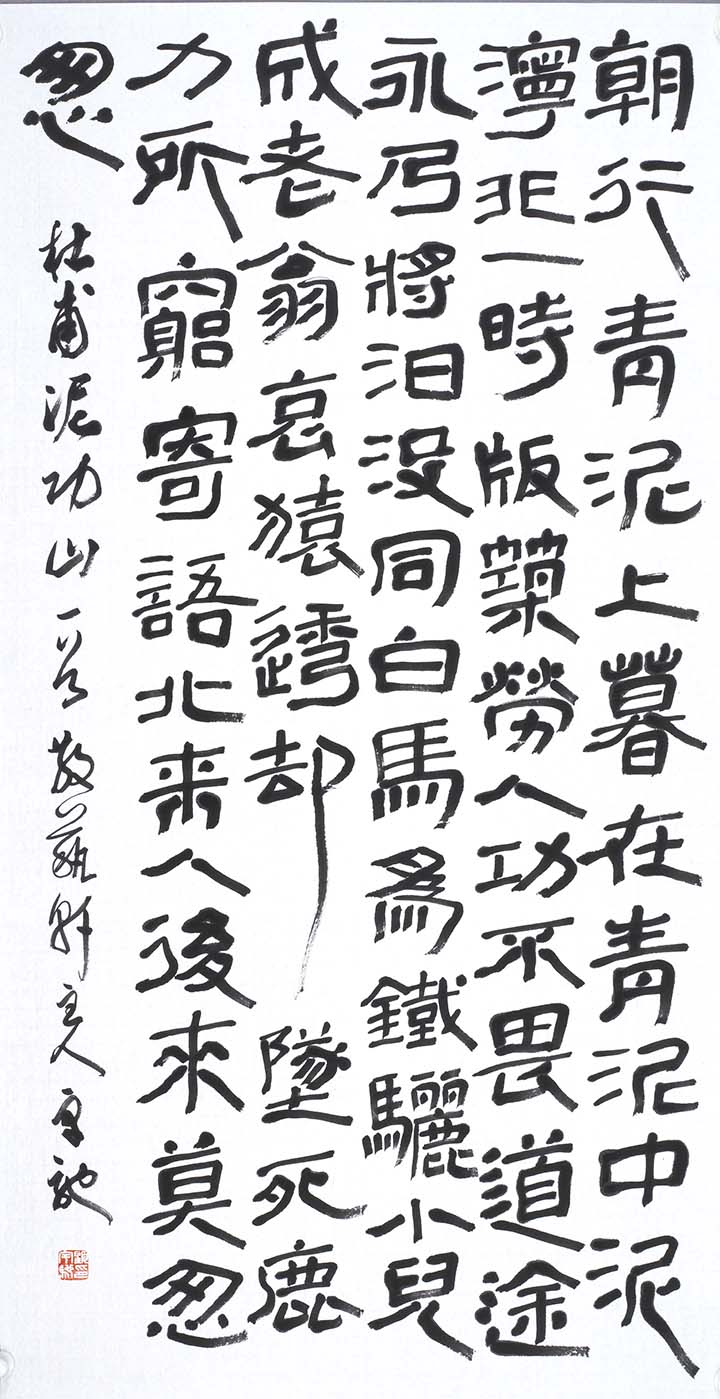 朝行青泥上暮在青泥中泥
濘非一時版築勞人功不畏道途
永乃將汩没同白馬爲鐵驪小兒
成老翁哀猿透却墜死鹿
力所窮寄語北來人後來莫怱
怱
杜甫泥功山一首 軒主人